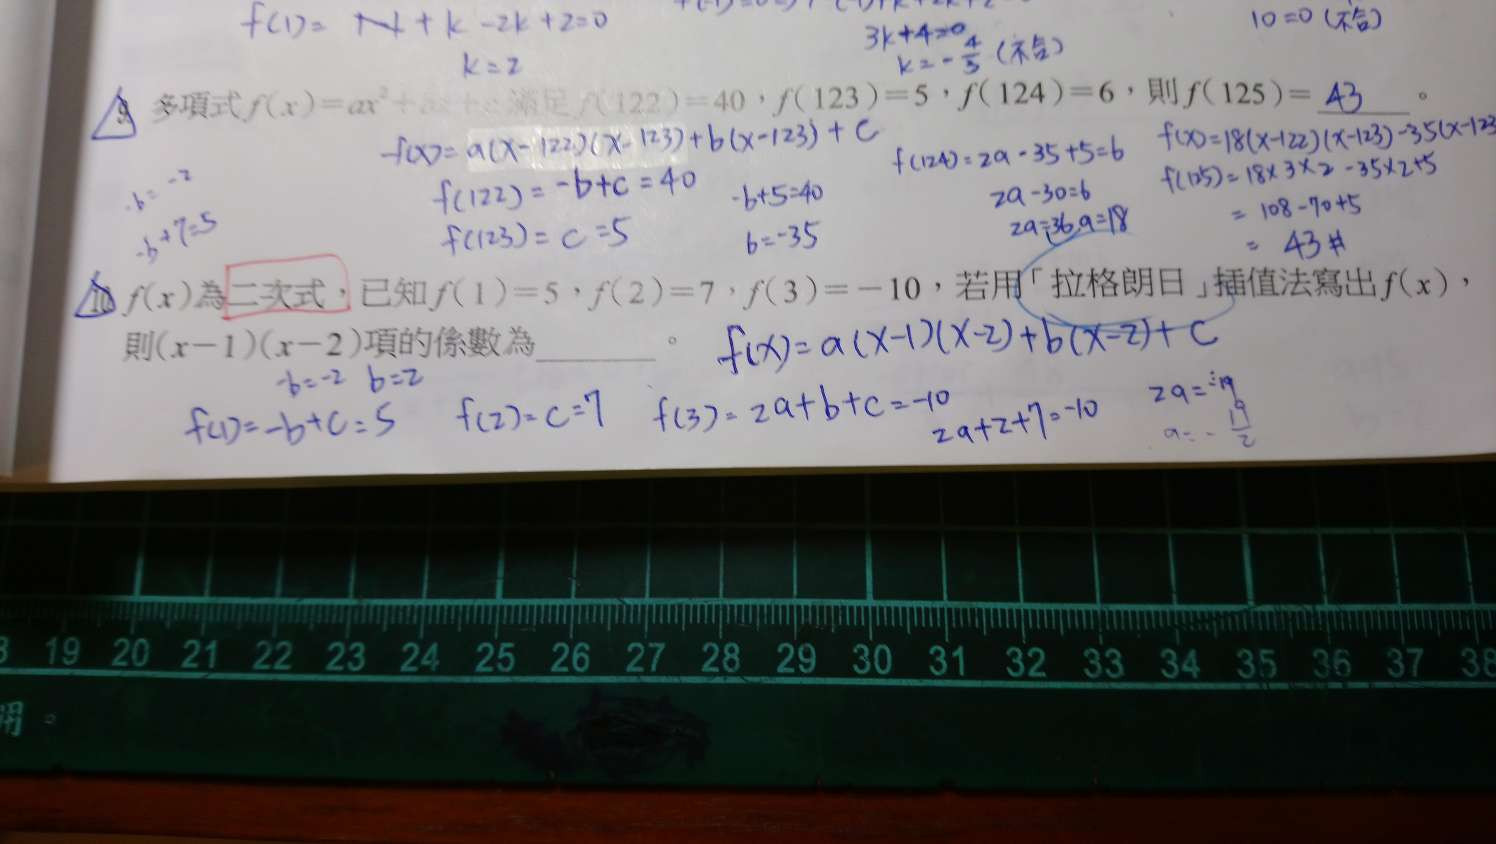 f(1)= + k -2k+2=0
k=2
3k+4=0
k=-4/3 (不合)
10=0 (不合)
9 多項式 f(x)=ax²+ 滿足 f(122)=40,f(123)=5,f(124)=6,則 f(125)= 43 。
f(x)=a(x-122)(x-123)+b(x-123)+c
f(122)=-b+c=40
f(123)=c=5
-b+5=40
b=-35
f(124)=2a-35+5=6
2a-30=6
2a=36,a=18
f(x)=18(x-122)(x-123)-35(x-123
f(125)=18×3×2-35×2+5
=108-70+5
=43#
-b=-2
-b+7=5
10 f(x)為二次式,已知 f(1)=5,f(2)=7,f(3)=-10,若用「拉格朗日」插值法寫出 f(x),
則(x-1)(x-2)項的係數為 。
f(x)=a(x-1)(x-2)+b(x-2)+c
-b=-2 b=2
f(1)=-b+c=5 f(2)=c=7 f(3)=2a+b+c=-10
2a+2+7=-10
2a=-19
a=-19/2
19 20 21 22 23 24 25 26 27 28 29 30 31 32 33 34 35 36 37 38